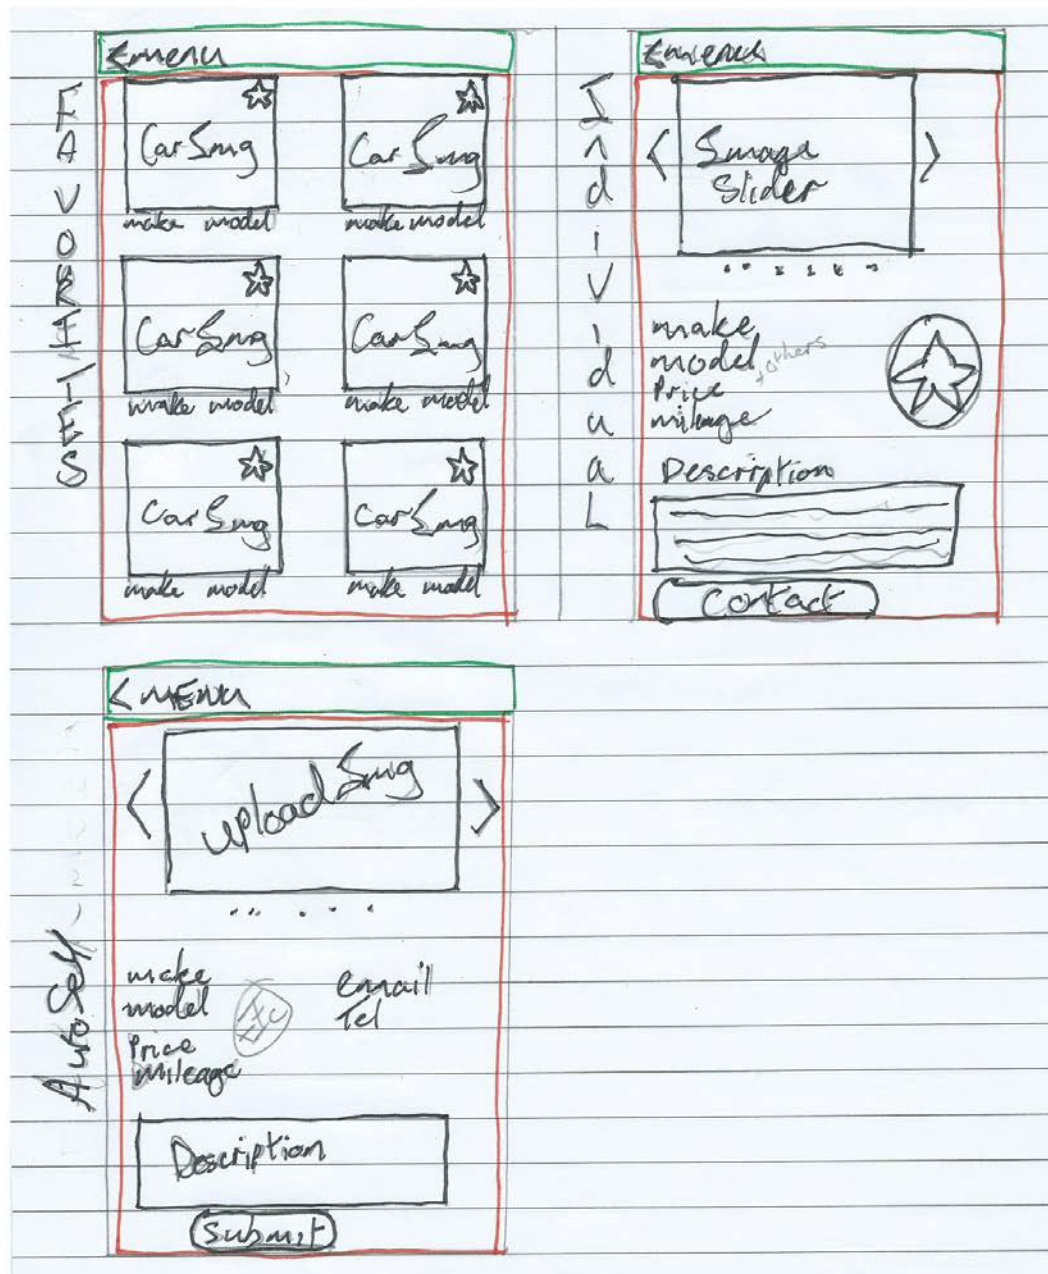 FAVORITES
<menu
Car Img
Car Img
make model
make model
Car Img
Car Img
make model
make model
Car Img
Car Img
make model
make model
IndiVidual
<menu
< Image >
Slider
make
model
+others
Price
mileage
Description
Contact
AutoSell
< MENU
< upload Img >
make
model
Price
mileage
email
Tel
Description
Submit